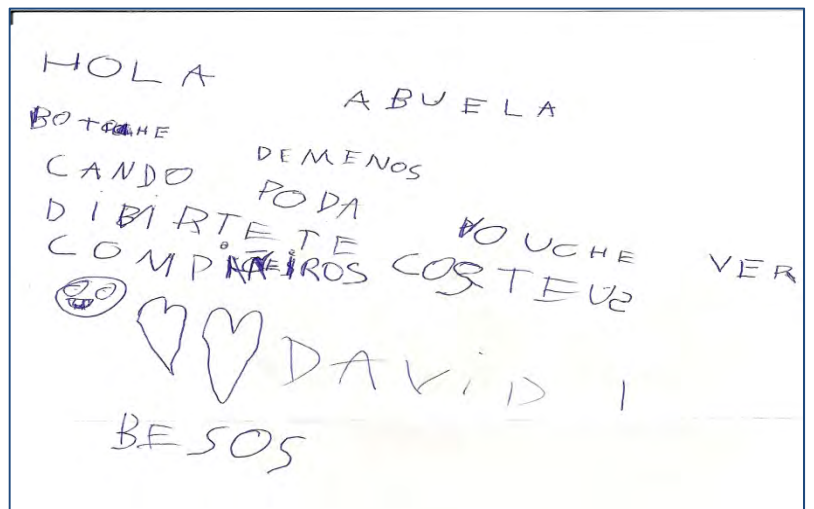 HOLA ABUELA
BOTOCHE DEMENOS
CANDO PODA VOUCHE VER
DIBIRTETE COSTEUS
COMPAÑEIROS
DAVID I
BESOS